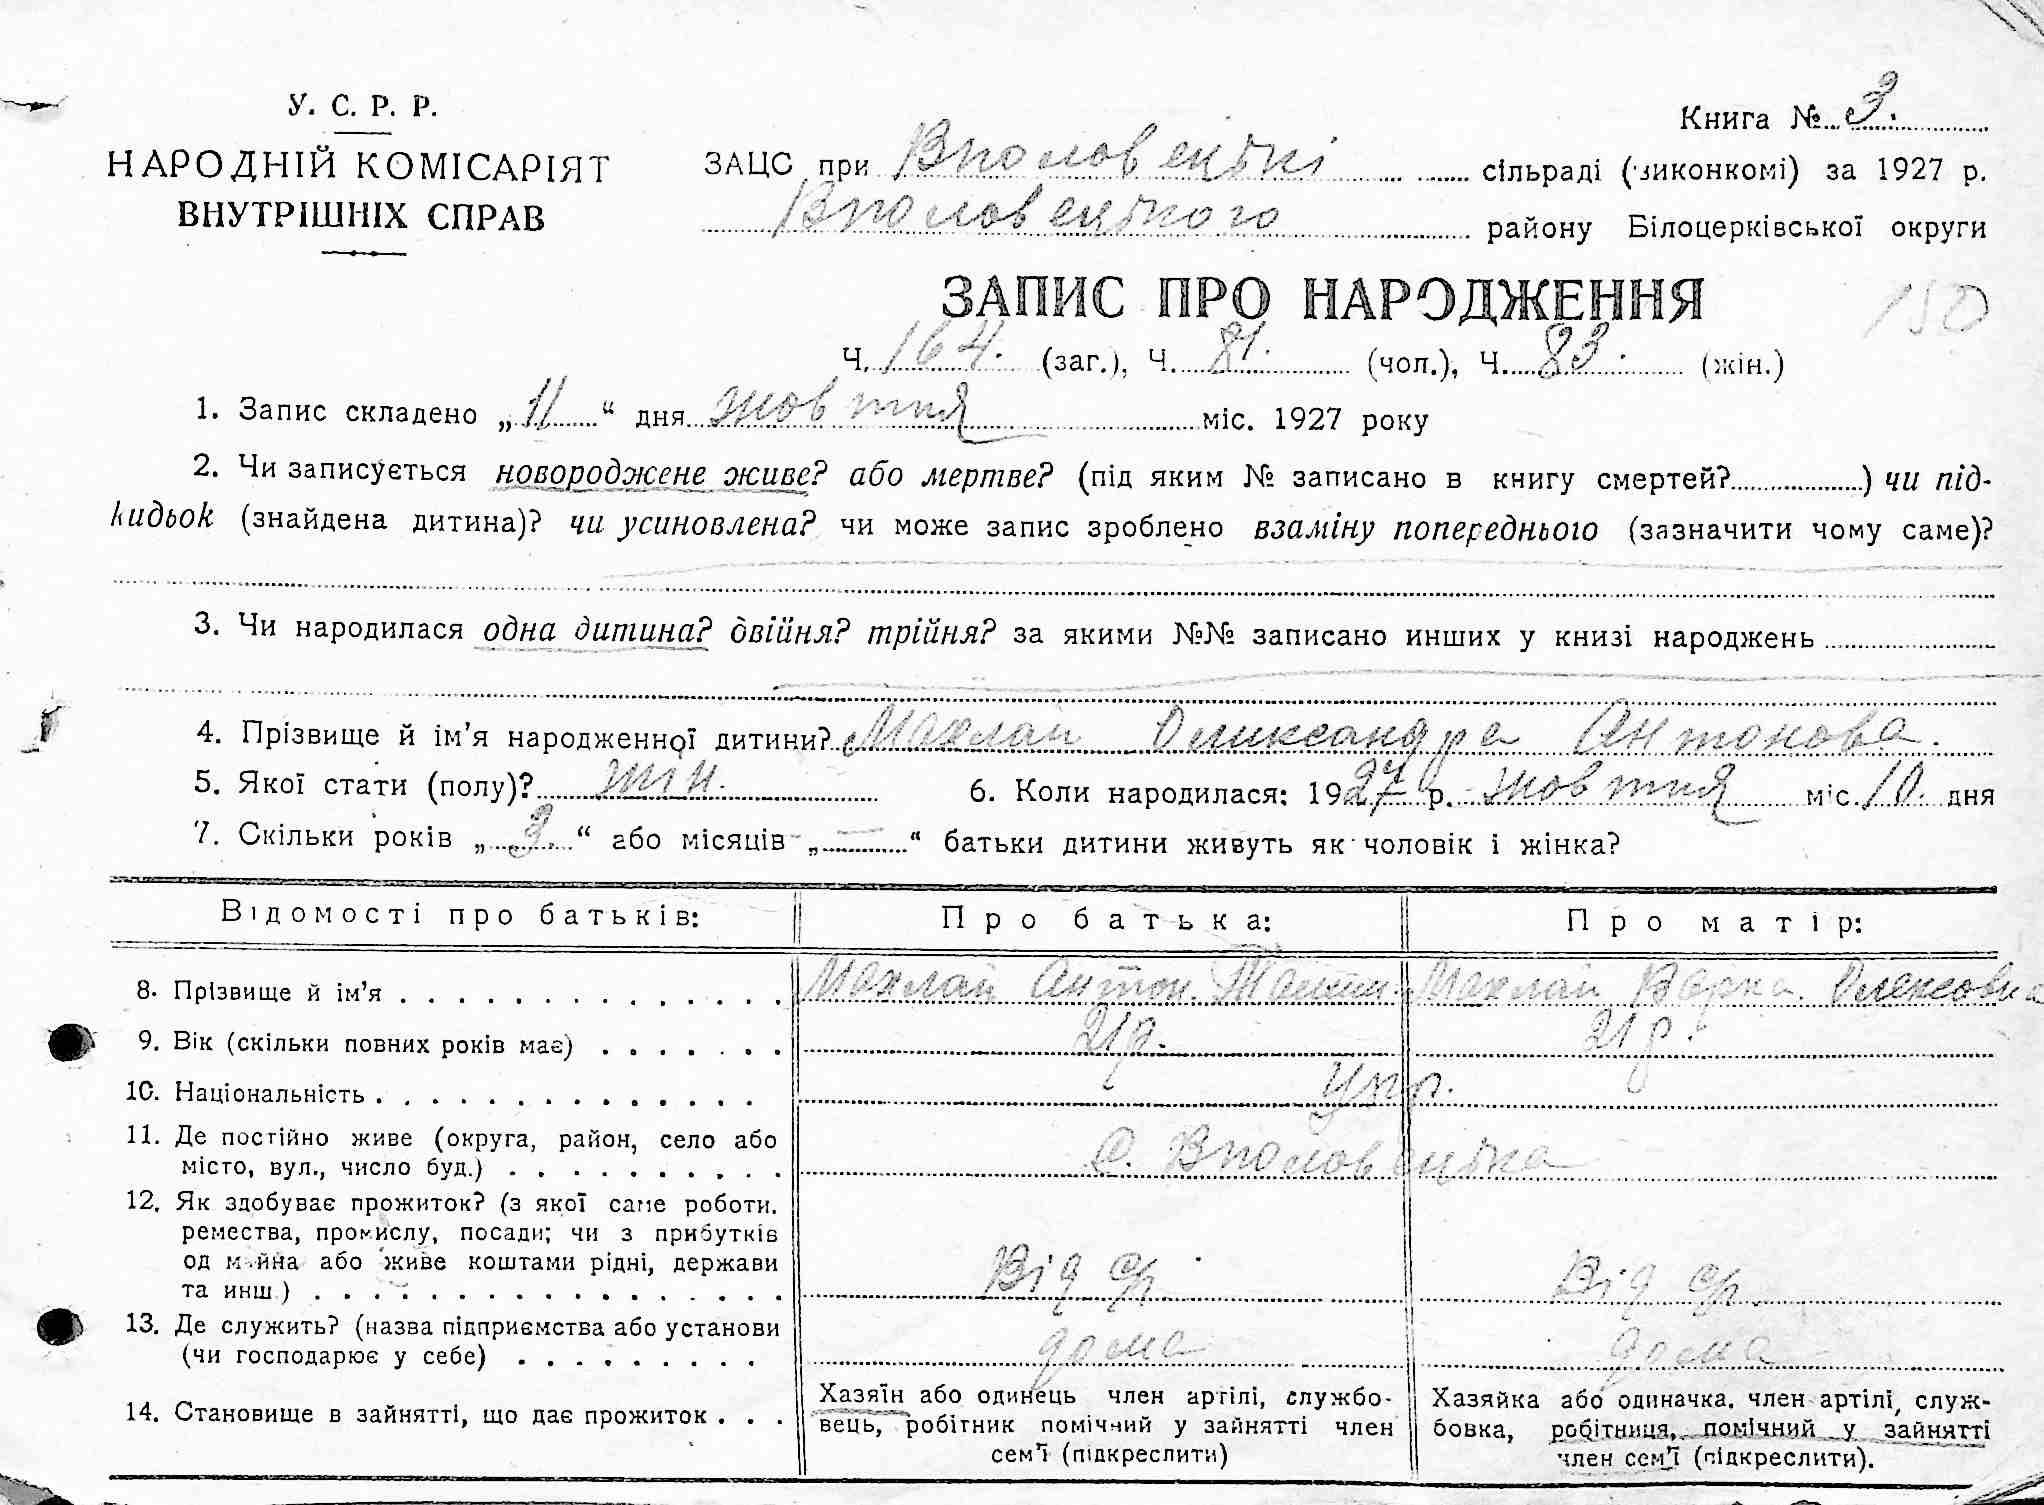 У. С. Р. Р.
НАРОДНІЙ КОМІСАРІЯТ
ВНУТРІШНІХ СПРАВ
Книга № 3.
ЗАЦС при Вполовецькі сільраді (виконкомі) за 1927 р.
Вполовецького району Білоцерківської округи
ЗАПИС ПРО НАРОДЖЕННЯ
150
Ч. 164. (заг.), Ч. 81. (чол.), Ч. 83. (жін.)
1. Запис складено „11“ дня жовтня міс. 1927 року
2. Чи записується новороджене живе? або мертве? (під яким № записано в книгу смертей?) чи під-
кидьок (знайдена дитина)? чи усиновлена? чи може запис зроблено взаміну попереднього (зазначити чому саме)?
3. Чи народилася одна дитина? двійня? трійня? за якими №№ записано инших у книзі народжень
4. Прізвище й ім’я народженної дитини? Махлай Оликсандра Антонова.
5. Якої стати (полу)? жін. 6. Коли народилася: 1927 р. жовтня міс. 10 дня
7. Скільки років „3.“ або місяців „—“ батьки дитини живуть як чоловік і жінка?
Відомості про батьків: Про батька: Про матір:
8. Прізвище й ім’я Махлай Антон. Махлай Варка Олексовна
9. Вік (скільки повних років має) 21р. 21р.
10. Національність Укр.
11. Де постійно живе (округа, район, село або
місто, вул., число буд.) с. Вполовецька
12. Як здобуває прожиток? (з якої саме роботи.
ремества, промислу, посади; чи з прибутків
од майна або живе коштами рідні, держави
та инш.) Від ср. Від ср.
13. Де служить? (назва підприємства або установи
(чи господарює у себе) дома дома
14. Становище в зайнятті, що дає прожиток
Хазяїн або одинець член артілі, службо-
вець, робітник помічний у зайнятті член
сем’ї (підкреслити)
Хазяйка або одиначка, член артілі, служ-
бовка, робітниця, помічний у зайнятті
член сем’ї (підкреслити).